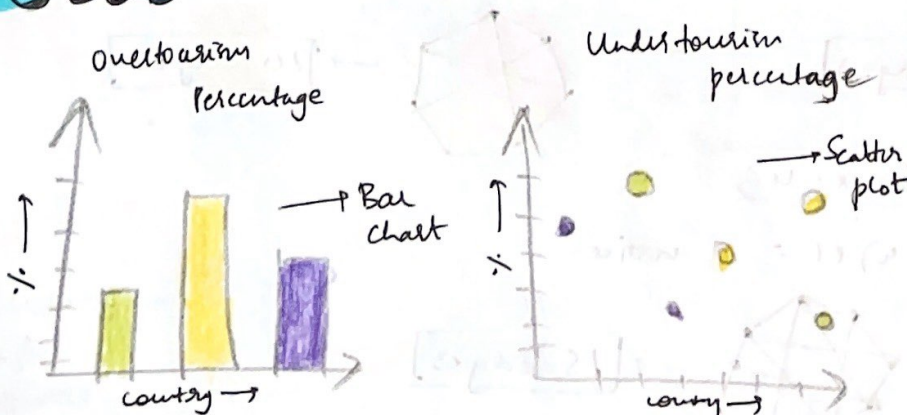 Overtourism
Percentage
→ Bar
chart
%
country →
Undertourism
percentage
→ Scatter
plot
%
country →